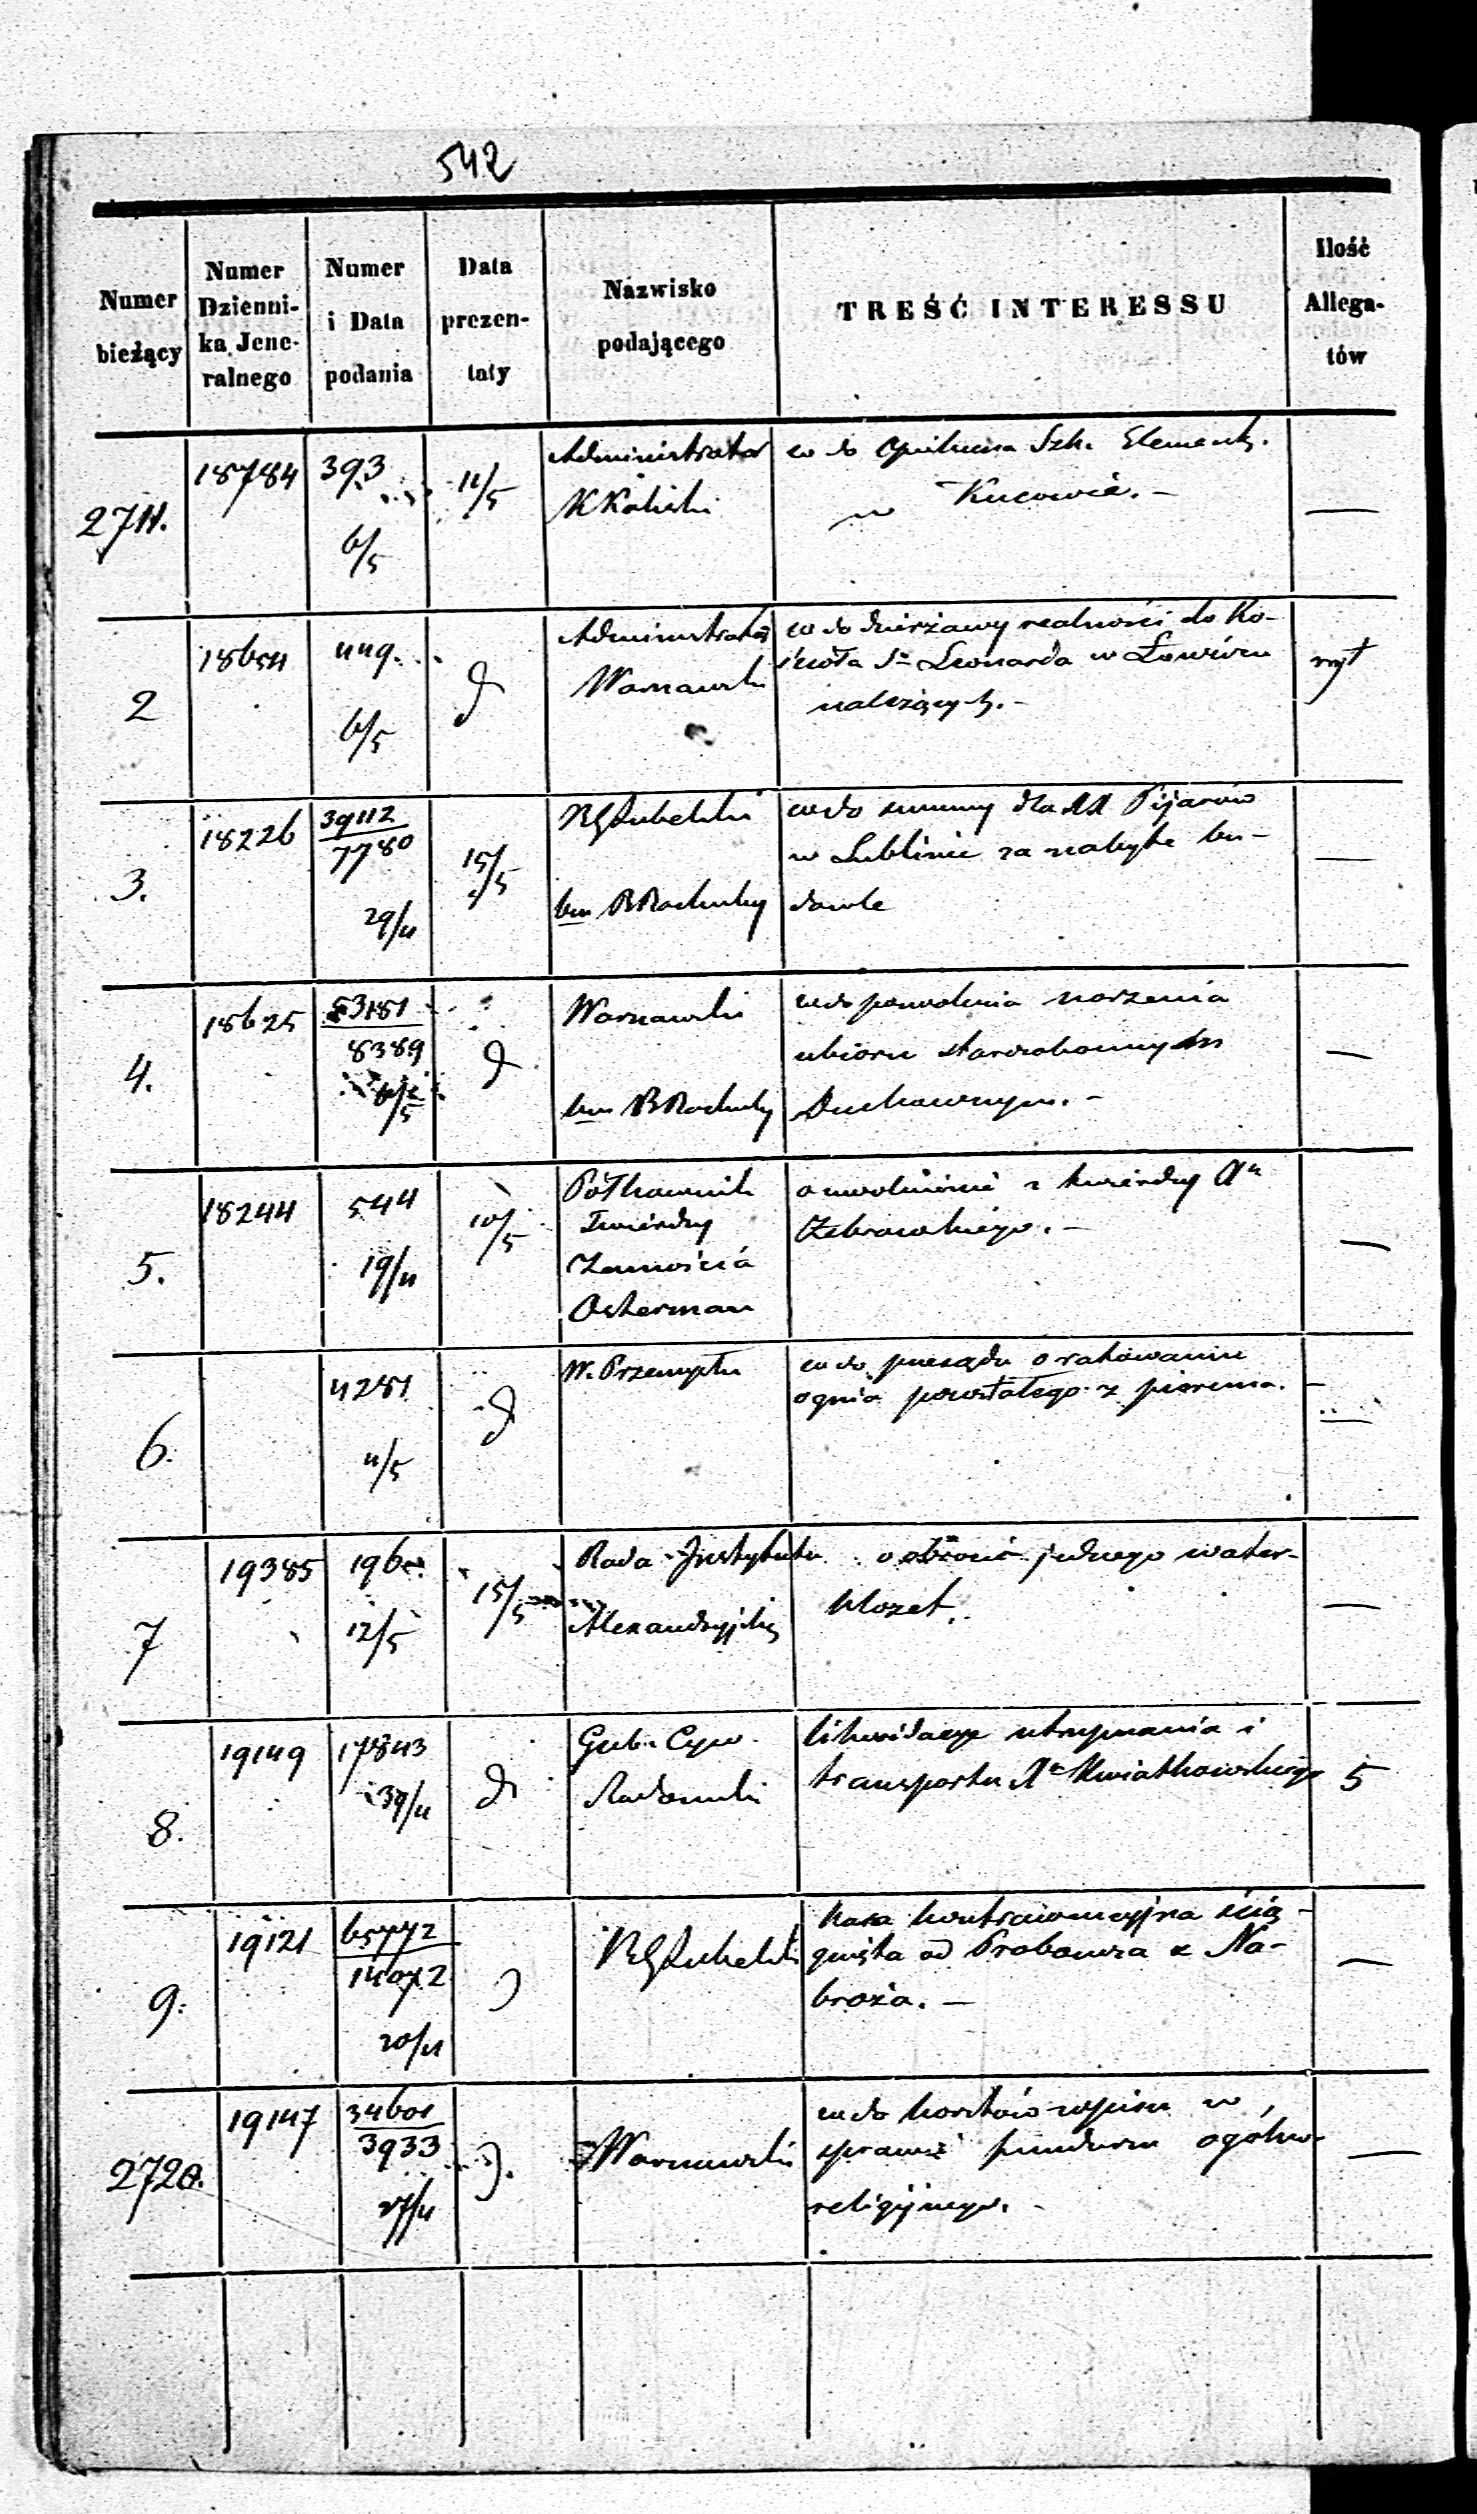 542
Numer
bieżący
Numer
Dzienni-
ka Jene-
ralnego
Numer
i Data
podania
Data
prezen-
taty
Nazwisko
podającego
TREŚĆ INTERESSU
Ilość
Allega-
tów
2711.
18784
393
6/5
11/5
Administrator
K Kaliski
co do Szk. Element.
w
—
2
18654
449.
6/5
d
Administrator
Warszawski
co do dzierżawy realności do Ko-
ścioła Sgo Leonarda w Łowiczu
należących. -
3.
18226
39112
7780
29/4
15/5
RG Lubelski
co do summy dla XX Pijarów
w Lublinie za nabyte bu-
dowle
—
4.
18625
53181
8389
6/5
d
Warszawski
co do pozwolenia noszenia
ubioru starozakonnym
Duchownym. -
—
5.
18244
544
19/4
10/5
Półkownik
Twierdzy
Zamościa
Osterman
o uwolnienie z twierdzy Xa
Żebrowskiego. -
—
6.
4281
4/5
d
W. Przemysłu
co do porządku o ratowaniu
ognia powstałego z pioruna.
—
7
19385
196
12/5
15/5
Rada Instytutu
Alexandryjskiego
o jednego water-
klozet.
—
8.
19149
17843
39/4
d
Gub. Cyw.
Radomski
likwidacye utrzymania i
transportu Xa Kwiatkowskiego
5
9.
19121
65772
14072
20/4
RG Lubelski
kara kontrawencyjna ścią-
gnięta od Proboszcza z Na-
broża. —
—
2720.
19147
34601
3933
27/4
Warszawski
co do kosztów wpisu w
sprawie funduszu ogólno-
religijnego. -
—